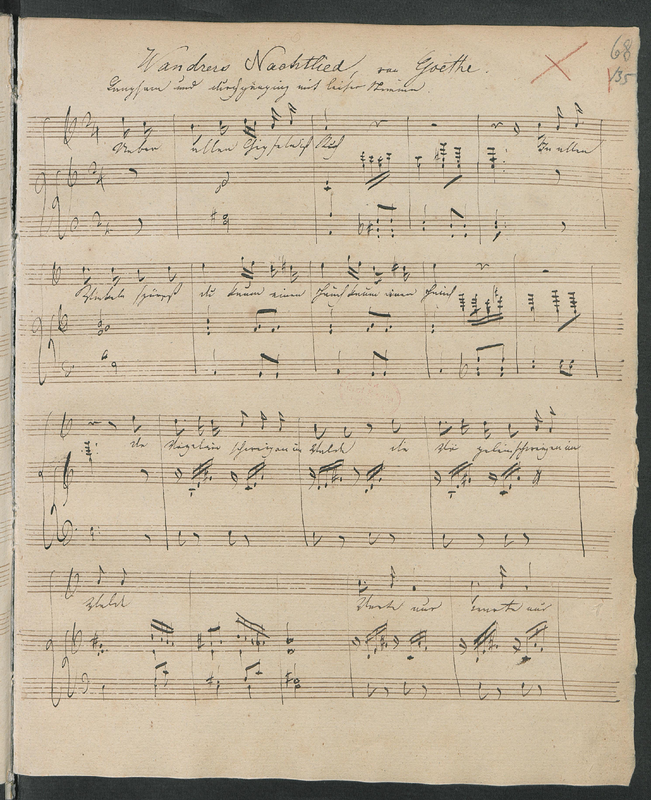 68
135
Wandrers Nachtlied, von Goethe.
Langsam und durchgängig mit leiser Stimme.
Ueber allen Gipfeln ist Ruh In allen
Wipfeln spürest du kaum einen Hauch kaum einen Hauch
die Vögelein schweigen im Walde die Vögelein schweigen im
Walde Warte nur warte nur